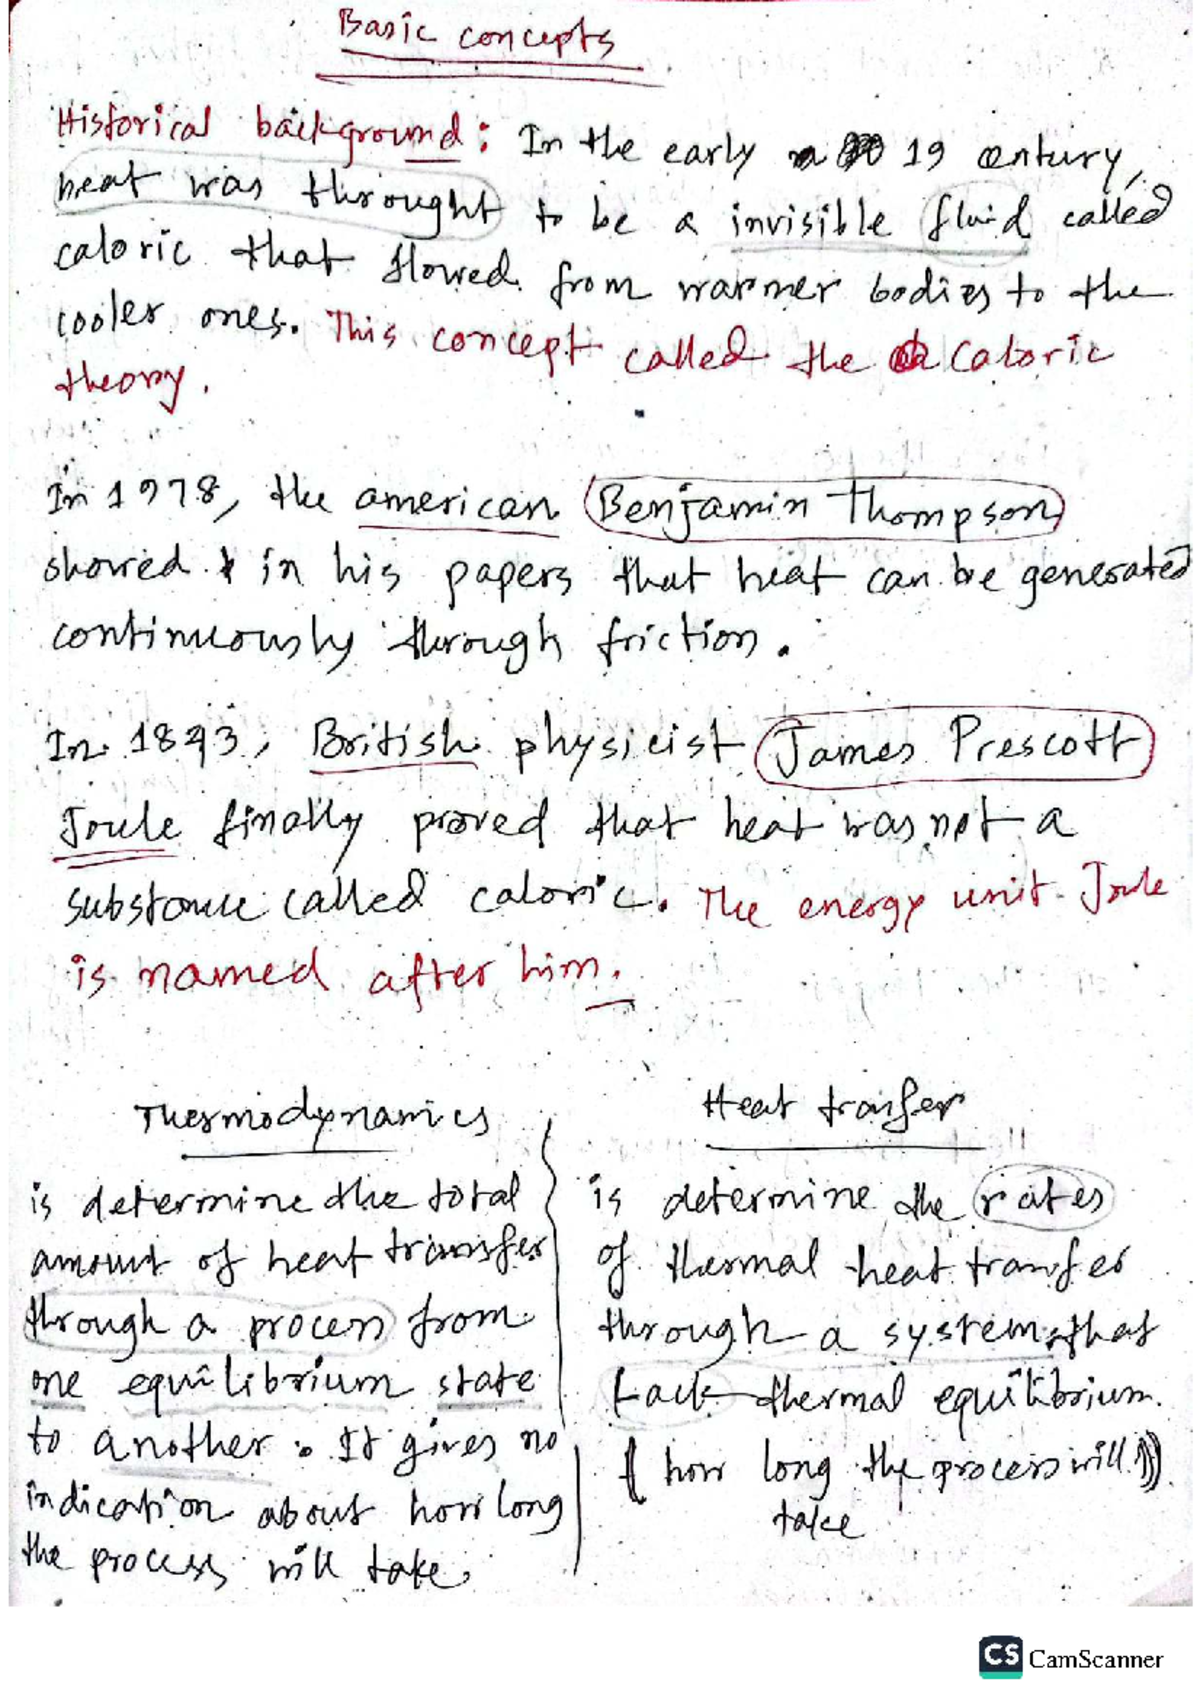 Basic concepts
Historical background: In the early 19 century,
heat was throught to be a invisible fluid called
caloric that flowed from warmer bodies to the
cooler ones. This concept called the Caloric
theory.
In 1978, the american Benjamin Thompson
showed in his papers that heat can be generated
continuously through friction.
In 1843, British physicist James Prescott
Joule finally proved that heat was not a
substance called caloric. The energy unit Joule
is named after him.
Thermodynamics
is determine the total
amount of heat transfer
through a process from
one equilibrium state
to another. It gives no
indication about how long
the process will take.
Heat transfer
is determine the rates
of thermal heat transfer
through a system that
Lack thermal equilibrium.
( how long the process will )
take
CS CamScanner